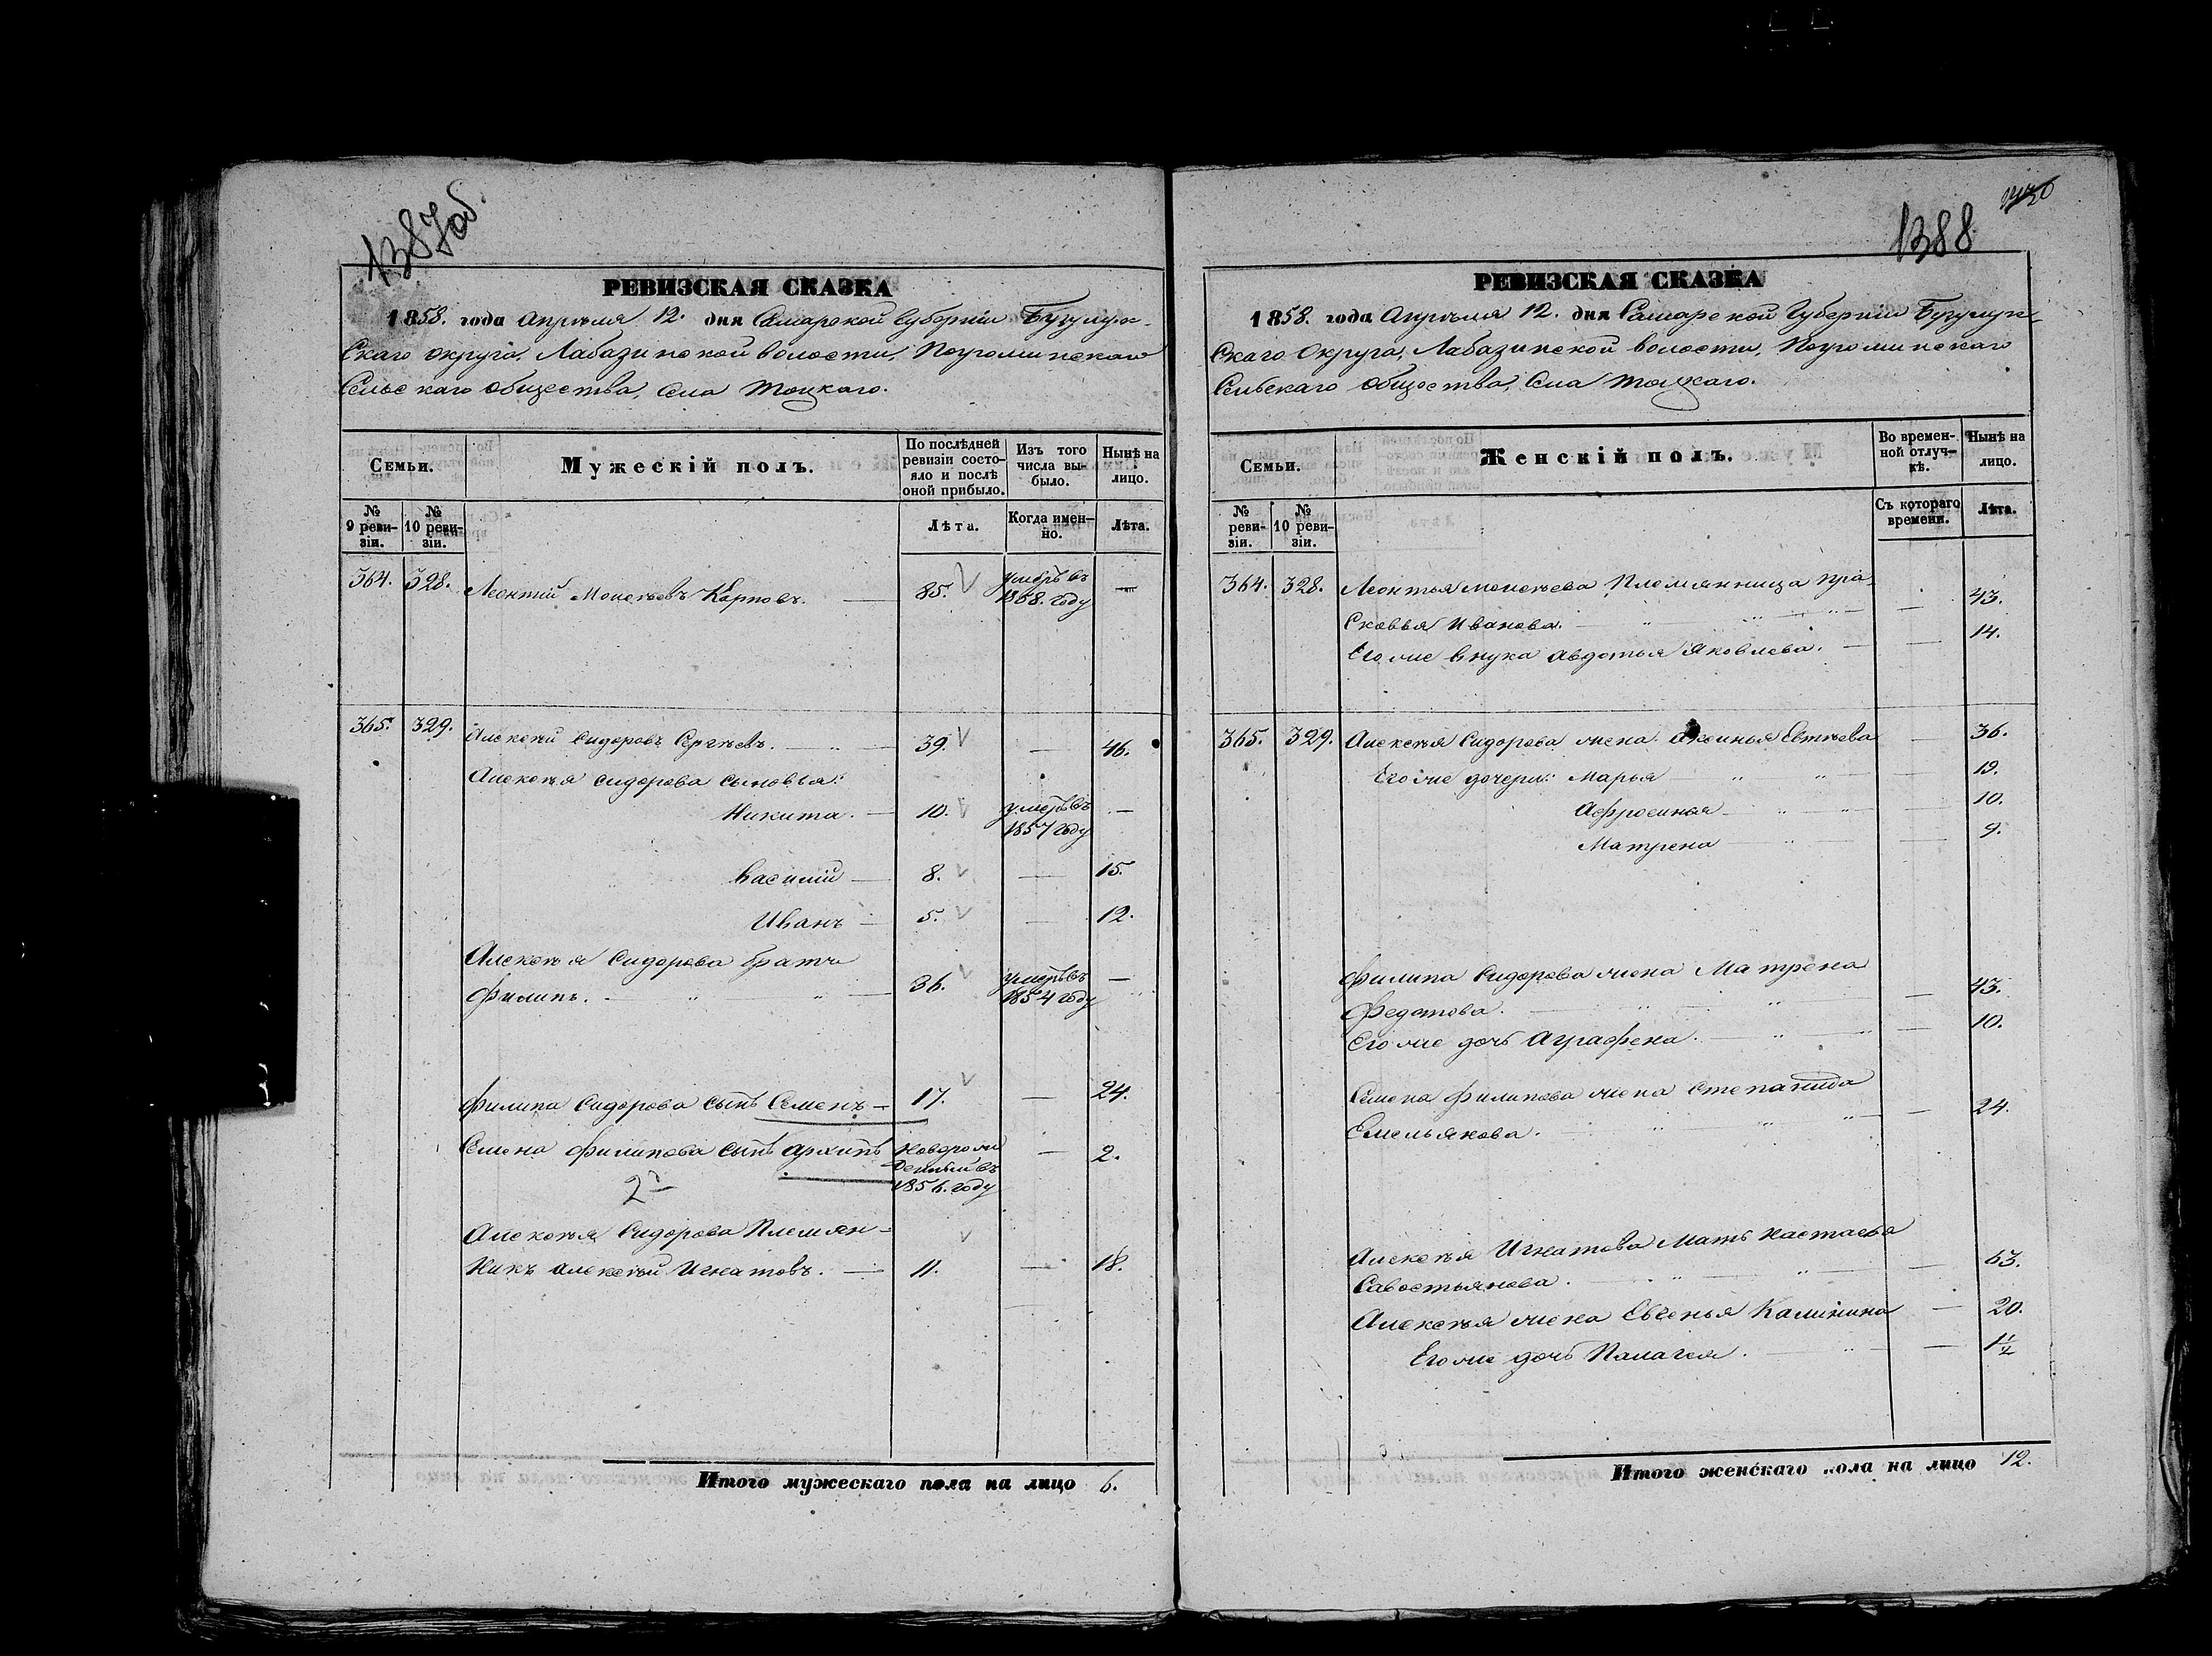 1387об.
РЕВИЗСКАЯ СКАЗКА
1858. года Апрѣля 12. дня Самарской Губерніи Бузулук-
скаго округа, Лабазинской волости, Погроминскаго
Сельскаго общества, села Тоцкаго.
Семьи.
Мужескій полъ.
По послѣдней ревизіи состояло и послѣ оной прибыло.
Изъ того числа выбыло.
Нынѣ на лицо.
№ 9 ревизіи.
№ 10 ревизіи.
Лѣта.
Когда именно.
Лѣта.
364. 328. Леонтій Моисѣевъ Карповъ. 85. умеръ въ 1858. году —
365. 329. Алексѣй Сидоровъ Сергѣевъ. 39. — 46.
Алексѣя Сидорова сыновья:
Никита. 10. умеръ въ 1857 году —
Василій — 8. — 15.
Иванъ — 5. — 12.
Алексѣя Сидорова братъ
Филипъ. 36. умеръ въ 1854 году —
Филипа Сидорова сынъ Семенъ — 17. — 24.
Семена Филипова сынъ Архипъ новорожденный въ 1856. году — 2.
2
Алексѣя Сидорова Племян-
никъ Алексѣй Игнатовъ. 11. — 18.
Итого мужескаго пола на лицо 6.
1388
РЕВИЗСКАЯ СКАЗКА
1858. года Апрѣля 12. дня Самарской Губерніи Бузулук-
скаго Округа, Лабазинской волости, Погроминскаго
Сельскаго общества, села Тоцкаго.
Семьи.
Женскій полъ.
Во временной отлучкѣ.
Нынѣ на лицо.
№ ревизіи.
№ 10 ревизіи.
Съ котораго времени.
Лѣта.
364. 328. Леонтья Моисѣева Племянница Пра-
сковья Иванова. — 43.
Его же внука Авдотья Яковлева. — 14.
365. 329. Алексѣя Сидорова жена Аксинья Евтѣева — 36.
Его же дочери: Марья — 19.
Афросинья — 10.
Матрена — 9.
Филипа Сидорова жена Матрена
Федотова. — 43.
Его же дочь Аграфена. — 10.
Семена Филипова жена Степанида
Емельянова. — 24.
Алексѣя Игнатова Мать Настасья
Савостьянова. — 63.
Алексѣя жена Евгенья Калинина — 20.
Его же дочь Палагея. — 1½
Итого женскаго пола на лицо 12.